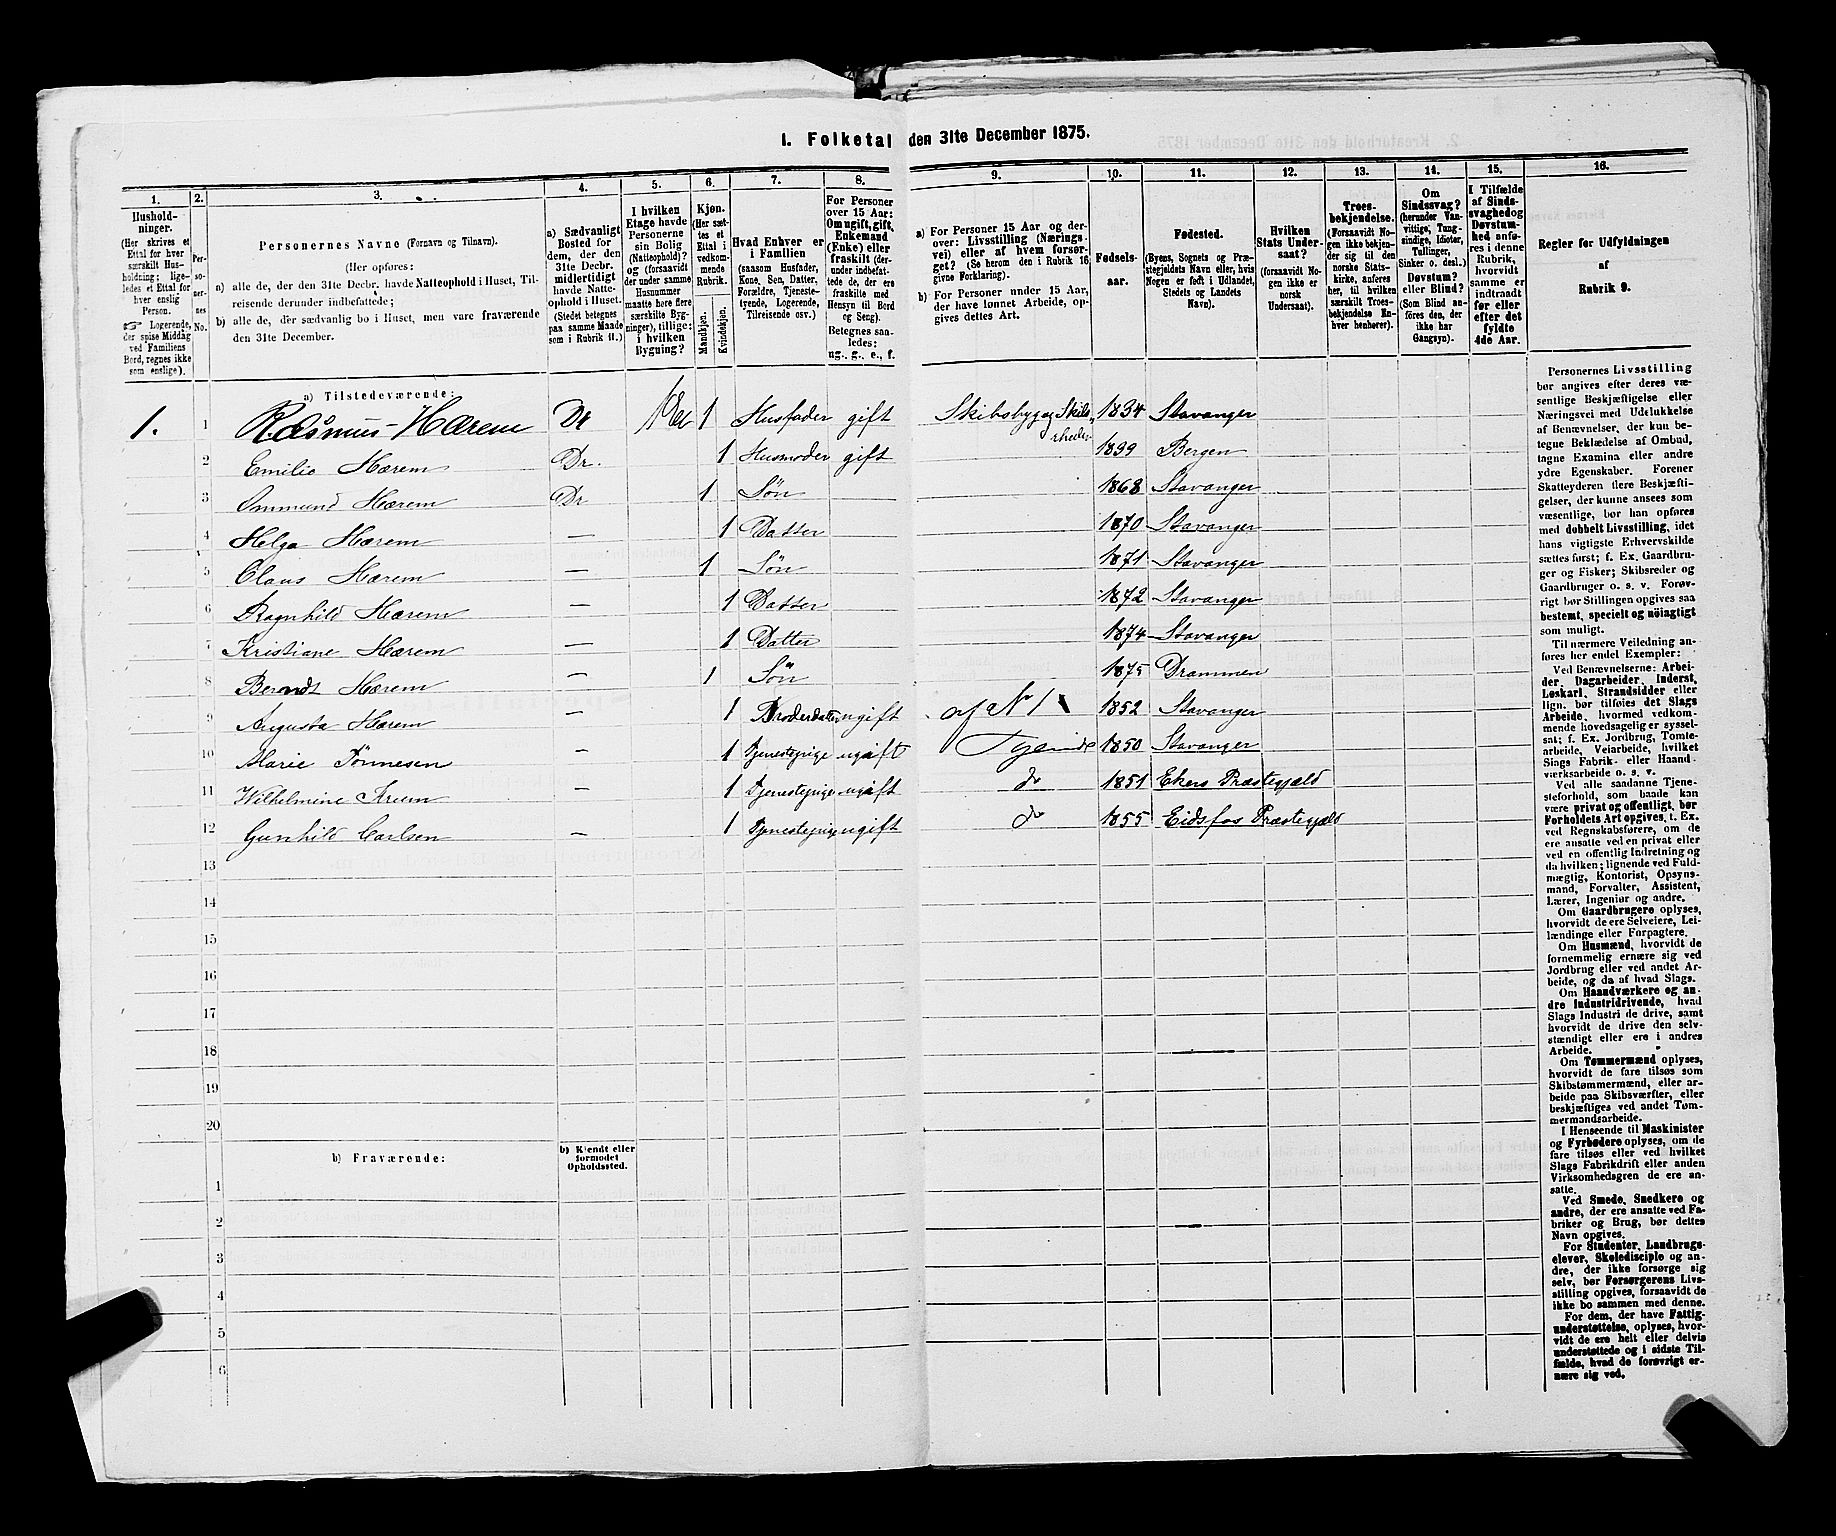 1. Folketal den 31te December 1875.
1.
Husholdninger.
(Her skrives et Ettal for hver særskilt Husholdning; ligeledes et Ettal for hver enslig Person.
☞ Logerende, der spise Middag ved Familiens Bord, regnes ikke som enslige).
2.
Personernes No.
3.
Personernes Navne (Fornavn og Tilnavn).
(Her opføres:
a) alle de, der den 31te Decbr. havde Natteophold i Huset, Tilreisende derunder indbefattede;
b) alle de, der sædvanlig bo i Huset, men vare fraværende den 31te December.
4.
a) Sædvanligt Bosted for dem, der den 31te Decbr. midlertidigt havde Natteophold i Huset.
(Stedet betegnes paa samme Maade som i Rubrik 11.)
5.
I hvilken Etage havde Personerne sin Bolig (Natteophold)? og (forsaavidt der under samme Husnummer maatte høre flere særskilte Bygninger), tillige: i hvilken Bygning?
6.
Kjøn.
(Her sættes et Ettal i vedkommende Rubrik.
Mandkjøn.
Kvindekjøn.
7.
Hvad Enhver er i Familien
(saasom Husfader, Kone, Søn, Datter, Forældre, Tjenestetyende, Logerende, Tilreisende osv.)
8.
For Personer over 15 Aar: Om ugift, gift, Enkemand (Enke) eller fraskilt (derunder indbefattede de, der ere fraskilte med Hensyn til Bord og Seng).
Betegnes saaledes: ug., g., e., f.
9.
a) For Personer 15 Aar og derover: Livsstilling (Næringsvei) eller af hvem forsørget? (Se herom den i Rubrik 16 givne Forklaring).
b) For Personer under 15 Aar, der have lønnet Arbeide, opgives dettes Art.
10.
Fødselsaar.
11.
Fødested.
(Byens, Sognets og Præstegjeldets Navn eller, hvis Nogen er født i Udlandet, Stedets og Landets Navn).
12.
Hvilken Stats Undersaat?
(forsaavidt Nogen ikke er norsk Undersaat).
13.
Troesbekjendelse.
(Forsaavidt Nogen ikke bekjender sig til den norske Statskirke, anføres her, til hvilken særskilt Troesbekjendelse Enhver henhører).
14.
Om Sindssvag? (herunder Vanvittige, Tungsindige, Idioter, Tullinger, Sinker o. desl.)
Døvstum? eller Blind? (Som Blind anføres den, der ikke har Gangsyn).
15.
I Tilfælde af Sindssvaghed og Døvstumhed anføres i denne Rubrik, hvorvidt samme er indtraadt før eller efter det fyldte 4de Aar.
16.
Regler for Udfyldningen af Rubrik 9.
a) Tilstedeværende:
1. 1 Rasmus Hærem Dr 1 Husfader gift Skibsbyg og Skibsrheder 1834 Stavanger
2 Emilie Hærem Dr. 1 Husmoder gift 1839 Bergen
3 Ommund Hærem Dr 1 Søn 1868 Stavanger
4 Helga Hærem — 1 Datter 1870 Stavanger
5 Claus Hærem — 1 Søn 1871 Stavanger
6 Ragnhild Hærem — 1 Datter 1872 Stavanger
7 Kristiane Hærem — 1 Datter 1874 Stavanger
8 Berendt Hærem — 1 Søn 1875 Drammen
9 Augusta Hærem — 1 Broderdatter ugift af No 1 1852 Stavanger
10 Marie Tönnesen — 1 Tjenestepige ugift Tyende 1850 Stavanger
11 Wilhelmine — 1 Tjenestepige ugift do 1851 Ekers Præstegjæld
12 Gunhild Carlsen — 1 Tjenestepige ugift do 1855 Eidsfos Præstegjæld
13
14
15
16
17
18
19
20
b) Fraværende:
b) Kjendt eller formodet Opholdssted.
1
2
3
4
5
6
Personernes Livsstilling bør angives efter deres væsentlige Beskjæftigelse eller Næringsvei med Udelukkelse af Benævnelser, der kun betegne Beklædelse af Ombud, tagne Examina eller andre ydre Egenskaber. Forener Skatteyderen flere Beskjæftigelser, der kunne ansees som væsentlige, bør han opføres med dobbelt Livsstilling, idet hans vigtigste Erhvervskilde sættes først; f. Ex. Gaardbruger og Fisker; Skibsreder og Gaardbruger o. s. v. Forøvrigt bør Stillingen opgives saa bestemt, specielt og nöiagtigt som muligt.
Til nærmere Veiledning anføres her endel Exempler:
Ved Benævnelserne: Arbeider, Dagarbeider, Inderst, Løskarl, Strandsidder eller lign. bør tilføies det Slags Arbeide, hvormed vedkommende hovedsagelig er sysselsat; f. Ex. Jordbrug, Tomtearbeide, Veiarbeide, hvilket Slags Fabrik- eller Haandværksarbeide o. s. v.
Ved alle saadanne Tjenesteforhold, som baade kan være privat og offentligt, bør Forholdets Art opgives, t. Ex. ved Regnskabsførere, om de ere ansatte ved en privat eller ved en offentlig Indretning og da hvilken; lignende ved Fuldmægtig, Kontorist, Opsynsmand, Forvalter, Assistent, Lærer, Ingeniør og andre.
Om Gaardbrugere oplyses, hvorvidt de ere Selveiere, Leilændinge eller Forpagtere.
Om Husmænd, hvorvidt de fornemmelig ernære sig ved Jordbrug eller ved andet Arbeide, og da af hvad Slags.
Om Haandværkere og andre Industridrivende, hvad Slags Industri de drive, samt hvorvidt de drive den selvstændigt eller ere i andres Arbeide.
Om Tømmermænd oplyses, hvorvidt de fare tilsøs som Skibstømmermænd, eller arbeide paa Skibsværfter, eller beskjæftiges ved andet Tømmermandsarbeide.
I Henseende til Maskinister og Fyrbødere oplyses, om de fare tilsøs eller ved hvilket Slags Fabrikdrift eller anden Virksomhedsgren de ere ansatte.
Ved Smede, Snedkere og andre, der ere ansatte ved Fabriker og Brug, bør dettes Navn opgives.
For Studenter, Landbrugselever, Skoledisciple og andre, der ikke forsørge sig selv, bør Forsørgerens Livsstilling opgives, forsaavidt de ikke bo sammen med denne.
For dem, der have Fattigunderstøttelse, oplyses, hvorvidt de ere helt eller delvis understøttede og i sidste Tilfælde, hvad de forøvrigt ernære sig ved.